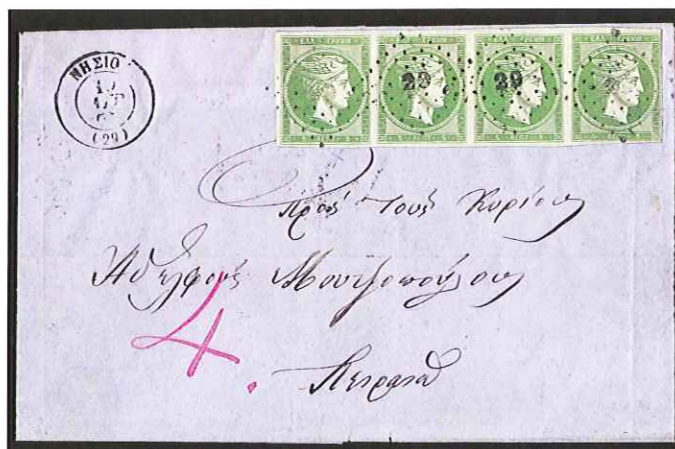 ΝΗΣΙΟ
(29)
29 29
Πρός τούς Κυρίους
Ἀδελφούς Μουτζοπούλους
4.
Πειραιᾶ